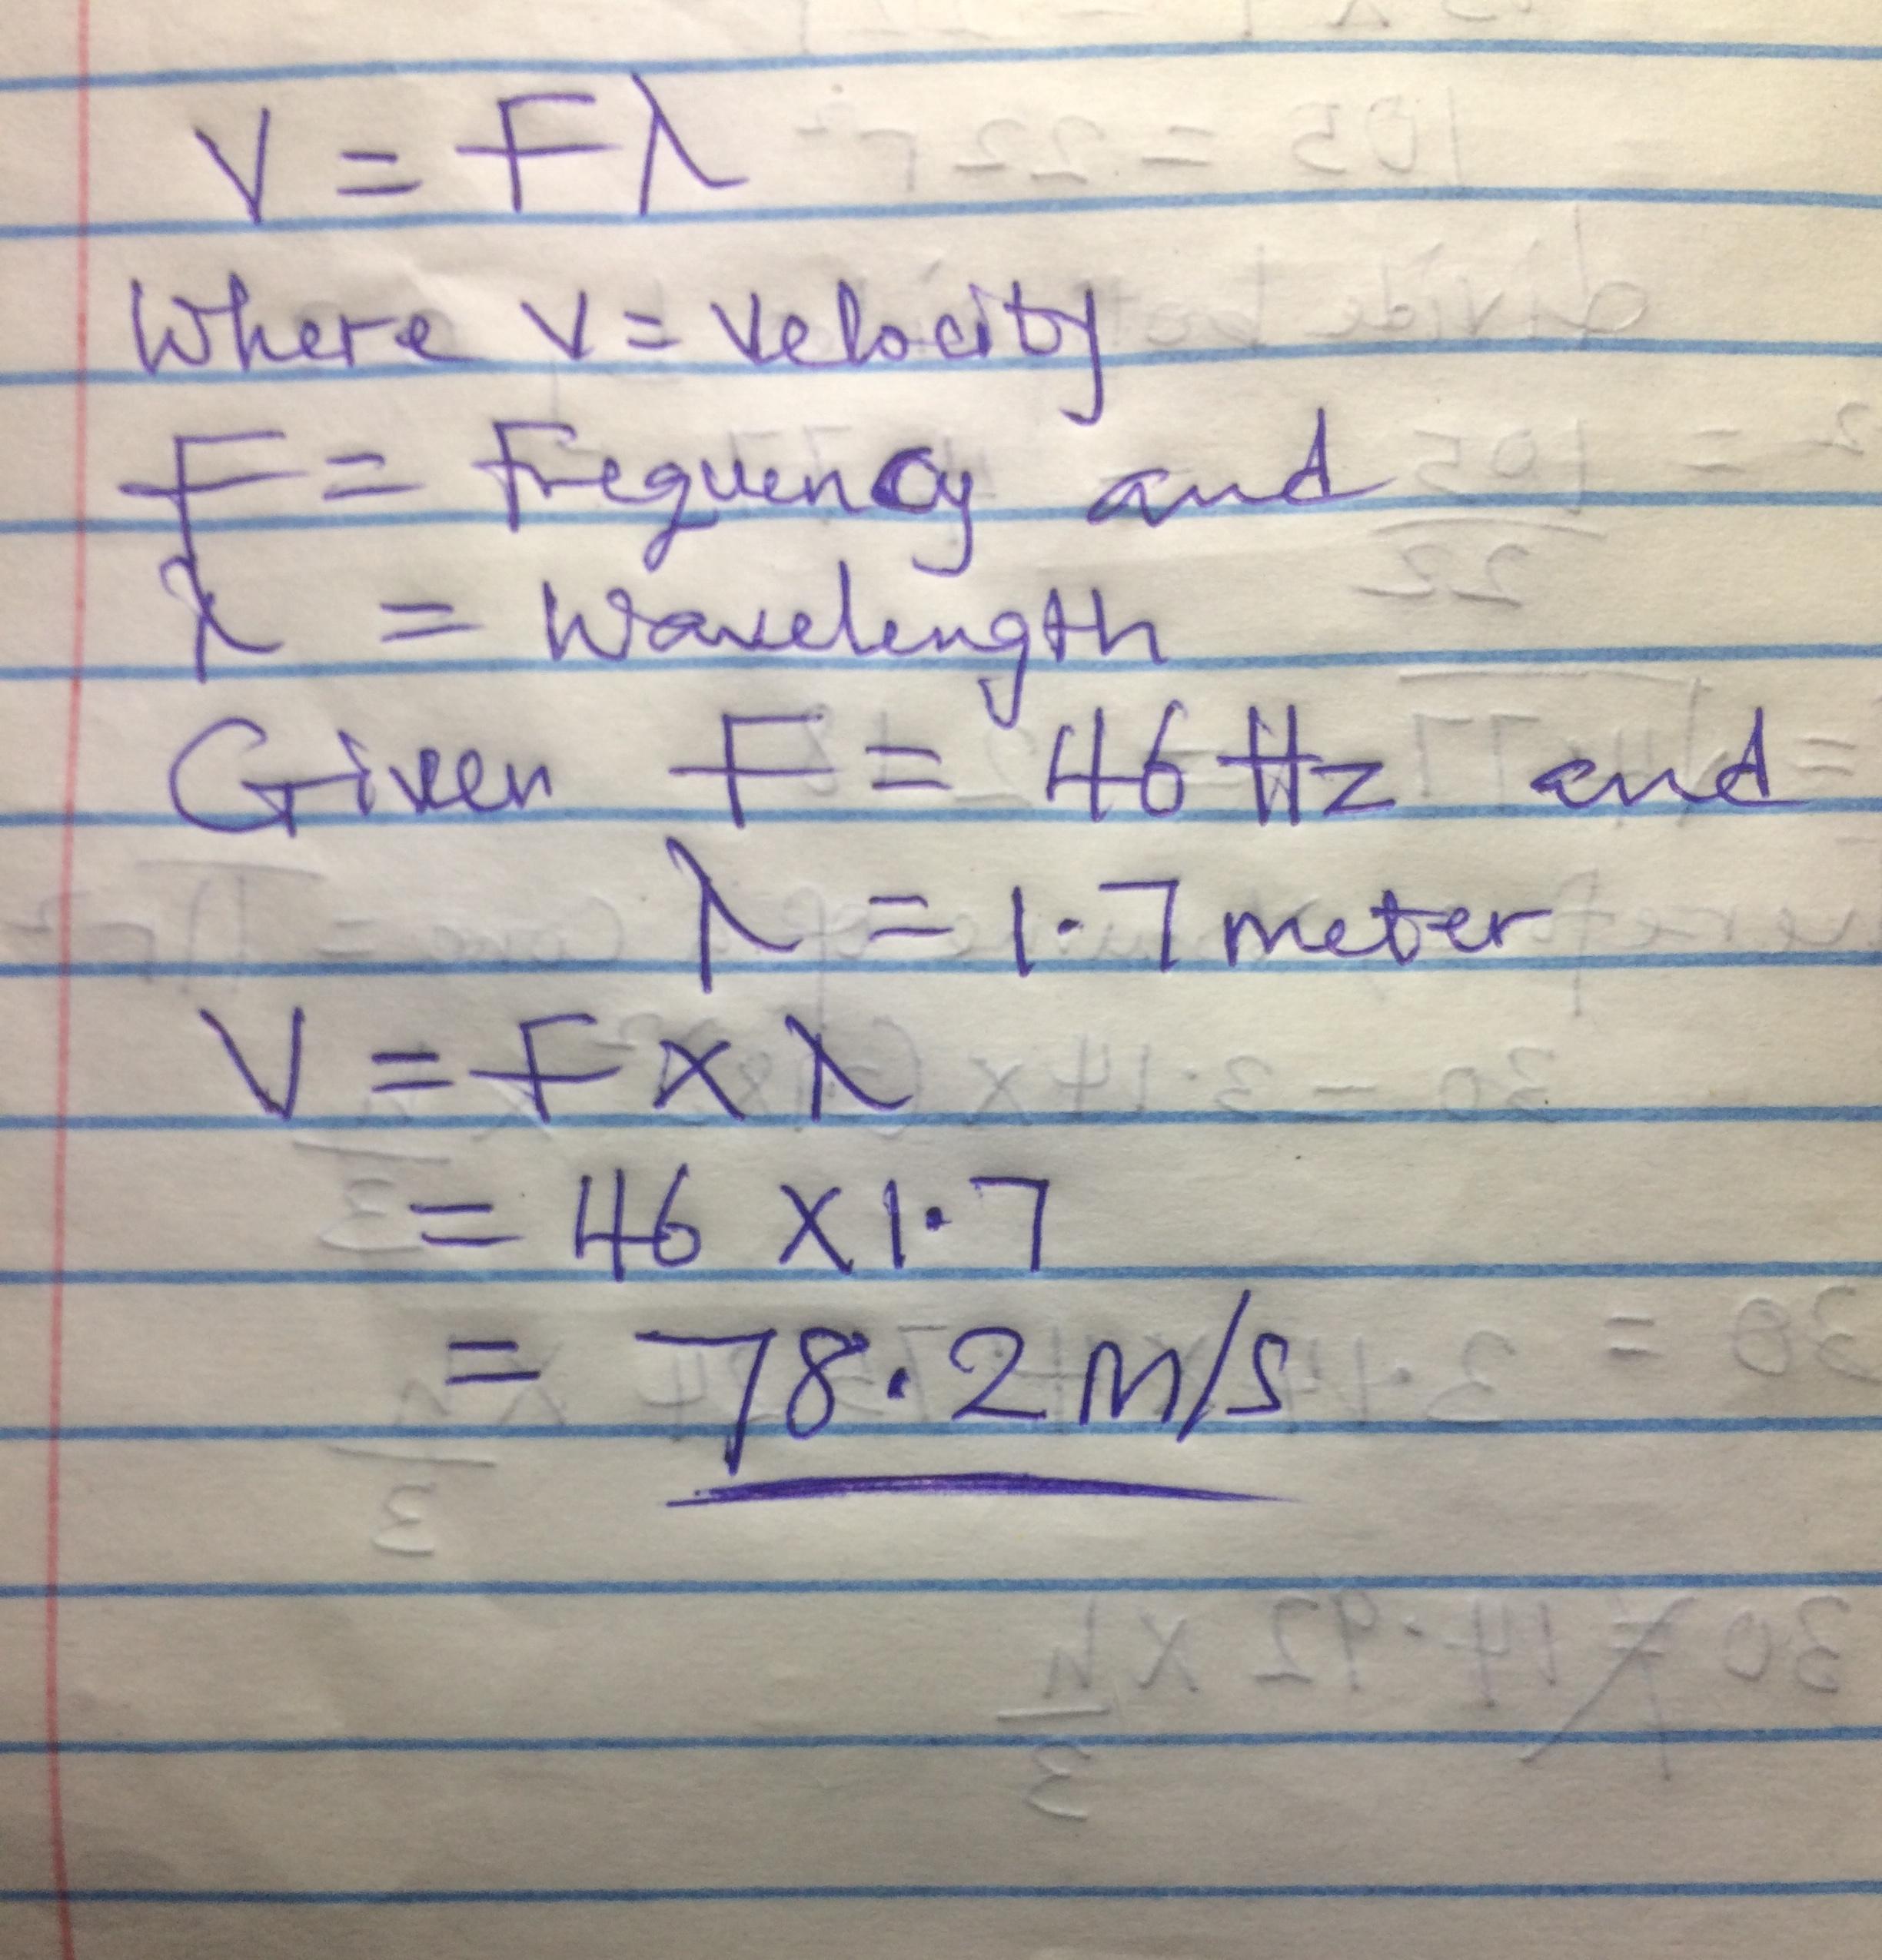 V = Fλ
Where V = Velocity
F = Frequency and
λ = Wavelength
Given F = 46 Hz and
λ = 1.7 meter
V = F x λ
= 46 x 1.7
= 78.2 m/s